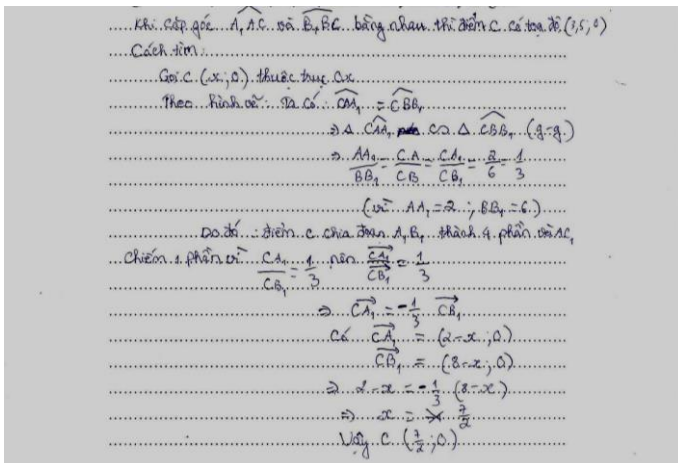 Khi cặp góc A₁AC và B₁BC bằng nhau thì điểm C có toạ độ (3,5;0)
Cách tìm:
Gọi C (x;0) thuộc trục Ox
Theo hình vẽ: Ta có: CAA₁ = CBB₁
⇒ Δ CAA₁ ∽ Δ CBB₁ (g-g)
⇒ AA₁/BB₁ = CA/CB = CA₁/CB₁ = 2/6 = 1/3
(vì AA₁ = 2; BB₁ = 6)
Do đó: điểm C chia đoạn A₁B₁ thành 4 phần và AC₁
Chiếm 1 phần vì CA₁/CB₁ = 1/3 nên CA₁/CB₁ = 1/3
⇒ CA₁ = -1/3 CB₁
Có CA₁ = (2-x;0)
CB₁ = (8-x;0)
⇒ 2-x = -1/3 (8-x)
⇒ x = 7/2
Vậy C (7/2;0)